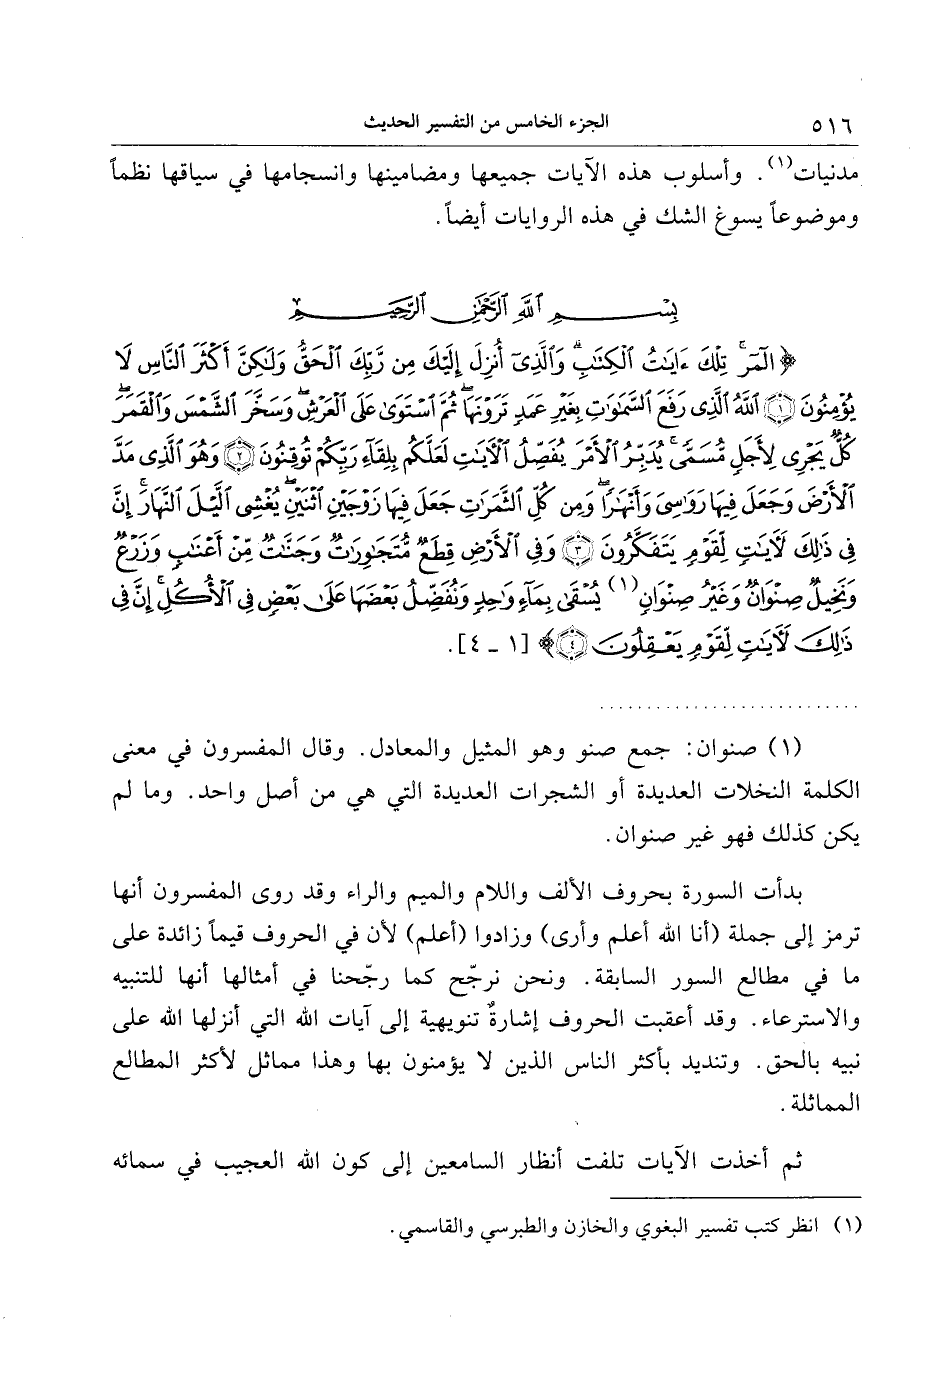 ٥١٦ الجزء الخامس من التفسير الحديث
مدنيات(١). وأسلوب هذه الآيات جميعها ومضامينها وانسجامها في سياقها نظماً
وموضوعاً يسوغ الشك في هذه الروايات أيضاً.
بِسْمِ ٱللَّهِ ٱلرَّحْمَٰنِ ٱلرَّحِيمِ
﴿الٓمٓرۚ تِلْكَ ءَايَٰتُ ٱلْكِتَٰبِۗ وَٱلَّذِىٓ أُنزِلَ إِلَيْكَ مِن رَّبِّكَ ٱلْحَقُّ وَلَٰكِنَّ أَكْثَرَ ٱلنَّاسِ لَا
يُؤْمِنُونَ ١ ٱللَّهُ ٱلَّذِى رَفَعَ ٱلسَّمَٰوَٰتِ بِغَيْرِ عَمَدٍ تَرَوْنَهَاۖ ثُمَّ ٱسْتَوَىٰ عَلَى ٱلْعَرْشِۖ وَسَخَّرَ ٱلشَّمْسَ وَٱلْقَمَرَۖ
كُلٌّ يَجْرِى لِأَجَلٍ مُّسَمًّىۚ يُدَبِّرُ ٱلْأَمْرَ يُفَصِّلُ ٱلْآيَٰتِ لَعَلَّكُم بِلِقَآءِ رَبِّكُمْ تُوقِنُونَ ٢ وَهُوَ ٱلَّذِى مَدَّ
ٱلْأَرْضَ وَجَعَلَ فِيهَا رَوَٰسِىَ وَأَنْهَٰرًاۖ وَمِن كُلِّ ٱلثَّمَرَٰتِ جَعَلَ فِيهَا زَوْجَيْنِ ٱثْنَيْنِۖ يُغْشِى ٱلَّيْلَ ٱلنَّهَارَۚ إِنَّ
فِى ذَٰلِكَ لَآيَٰتٍ لِّقَوْمٍ يَتَفَكَّرُونَ ٣ وَفِى ٱلْأَرْضِ قِطَعٌ مُّتَجَٰوِرَٰتٌ وَجَنَّٰتٌ مِّنْ أَعْنَٰبٍ وَزَرْعٌ
وَنَخِيلٌ صِنْوَانٌ وَغَيْرُ صِنْوَانٍ(١) يُسْقَىٰ بِمَآءٍ وَٰحِدٍ وَنُفَضِّلُ بَعْضَهَا عَلَىٰ بَعْضٍ فِى ٱلْأُكُلِۚ إِنَّ فِى
ذَٰلِكَ لَآيَٰتٍ لِّقَوْمٍ يَعْقِلُونَ ٤﴾ [١ - ٤].
(١) صنوان: جمع صنو وهو المثيل والمعادل. وقال المفسرون في معنى
الكلمة النخلات العديدة أو الشجرات العديدة التي هي من أصل واحد. وما لم
يكن كذلك فهو غير صنوان.
بدأت السورة بحروف الألف واللام والميم والراء وقد روى المفسرون أنها
ترمز إلى جملة (أنا الله أعلم وأرى) وزادوا (أعلم) لأن في الحروف قيماً زائدة على
ما في مطالع السور السابقة. ونحن نرجّح كما رجّحنا في أمثالها أنها للتنبيه
والاسترعاء. وقد أعقبت الحروف إشارةٌ تنويهية إلى آيات الله التي أنزلها الله على
نبيه بالحق. وتنديد بأكثر الناس الذين لا يؤمنون بها وهذا مماثل لأكثر المطالع
المماثلة.
ثم أخذت الآيات تلفت أنظار السامعين إلى كون الله العجيب في سمائه
(١) انظر كتب تفسير البغوي والخازن والطبرسي والقاسمي.